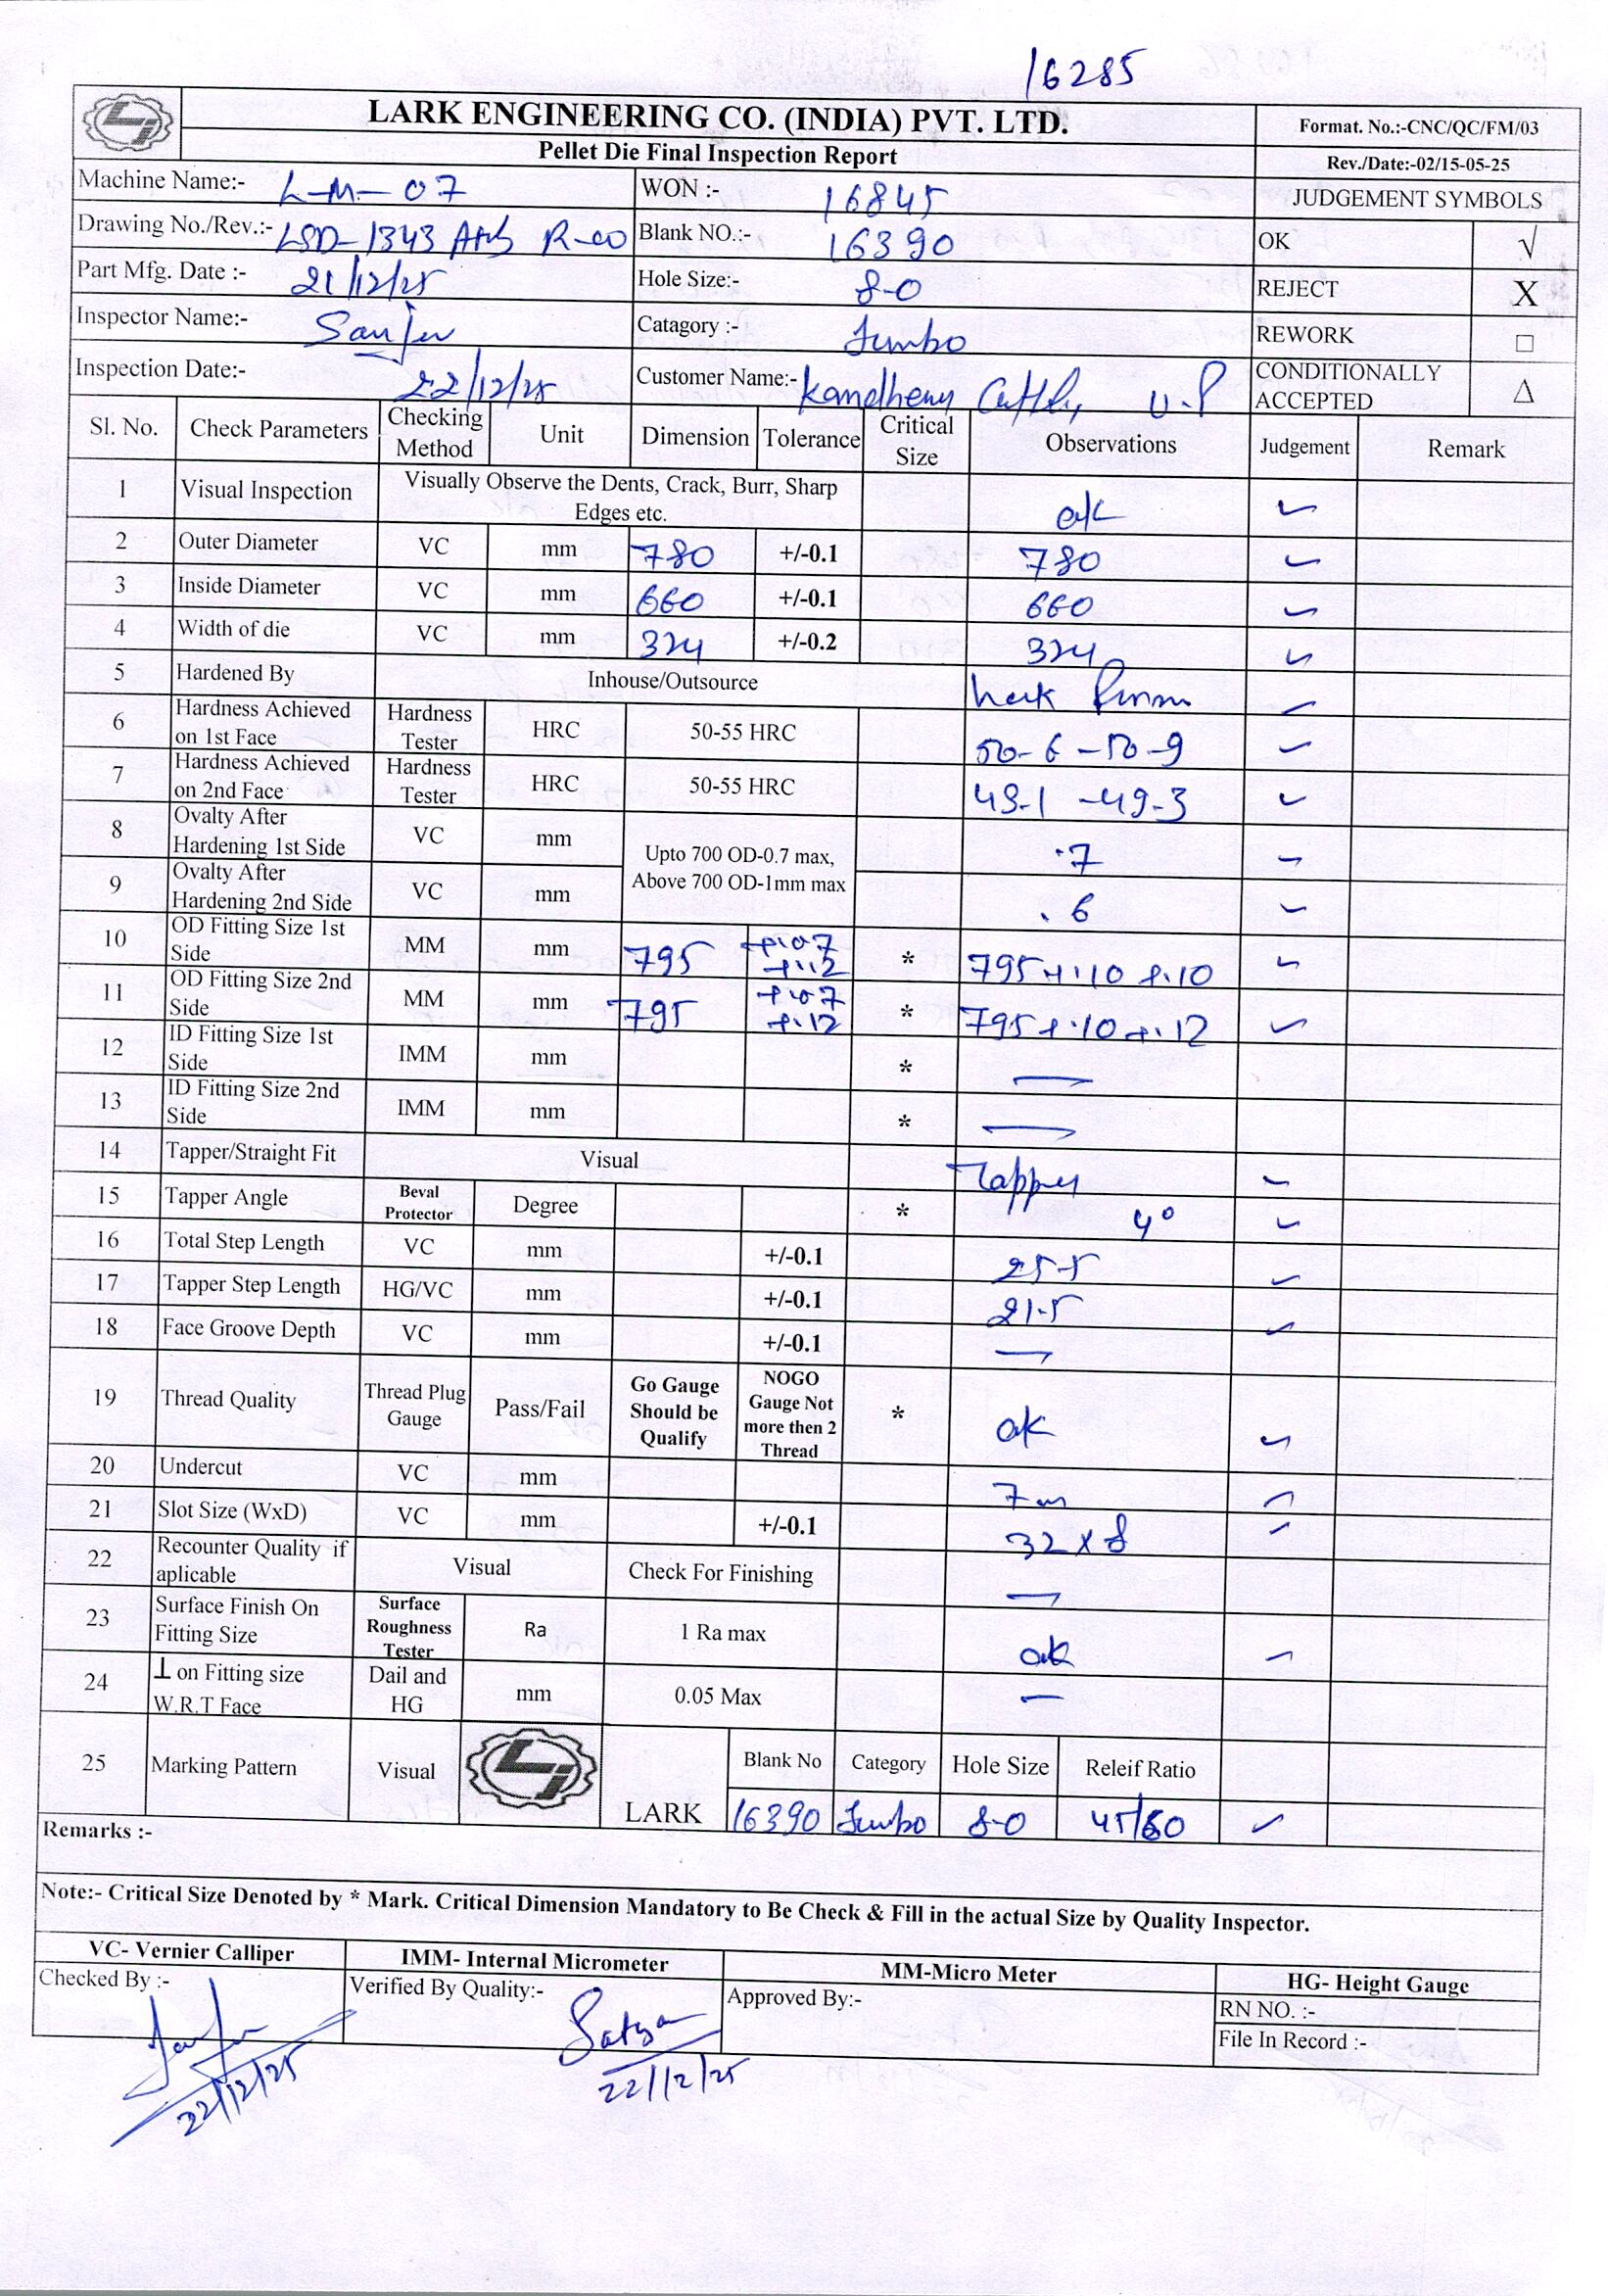 16285
LARK ENGINEERING CO. (INDIA) PVT. LTD.
Format. No.:-CNC/QC/FM/03
Pellet Die Final Inspection Report
Rev./Date:-02/15-05-25
Machine Name:- L-M-07 WON :- 16845 JUDGEMENT SYMBOLS
Drawing No./Rev.:- LSD-1343 R-00 Blank NO.:- 16390 OK √
Part Mfg. Date :- 21/12/25 Hole Size:- 8-0 REJECT X
Inspector Name:- Sanju Catagory :- Jumbo REWORK □
Inspection Date:- 22/12/25 Customer Name:- Kamdhenu U.P CONDITIONALLY ACCEPTED △
Sl. No. Check Parameters Checking Method Unit Dimension Tolerance Critical Size Observations Judgement Remark
1 Visual Inspection Visually Observe the Dents, Crack, Burr, Sharp Edges etc. ok ✓
2 Outer Diameter VC mm 780 +/-0.1 780 ✓
3 Inside Diameter VC mm 660 +/-0.1 660 ✓
4 Width of die VC mm 324 +/-0.2 324 ✓
5 Hardened By Inhouse/Outsource ✓
6 Hardness Achieved on 1st Face Hardness Tester HRC 50-55 HRC 50-6-50-9 ✓
7 Hardness Achieved on 2nd Face Hardness Tester HRC 50-55 HRC 49-1 -49-3 ✓
8 Ovalty After Hardening 1st Side VC mm Upto 700 OD-0.7 max, Above 700 OD-1mm max .7 ✓
9 Ovalty After Hardening 2nd Side VC mm .6 ✓
10 OD Fitting Size 1st Side MM mm 795 +.07 +.12 * 795+.10 +.10 ✓
11 OD Fitting Size 2nd Side MM mm 795 +.07 +.12 * 795+.10+.12 ✓
12 ID Fitting Size 1st Side IMM mm * —
13 ID Fitting Size 2nd Side IMM mm * —
14 Tapper/Straight Fit Visual Tapper ✓
15 Tapper Angle Beval Protector Degree * 4° ✓
16 Total Step Length VC mm +/-0.1 25-5 ✓
17 Tapper Step Length HG/VC mm +/-0.1 21-5 ✓
18 Face Groove Depth VC mm +/-0.1 —
19 Thread Quality Thread Plug Gauge Pass/Fail Go Gauge Should be Qualify NOGO Gauge Not more then 2 Thread * ok ✓
20 Undercut VC mm 7m ✓
21 Slot Size (WxD) VC mm +/-0.1 32x8 ✓
22 Recounter Quality if aplicable Visual Check For Finishing —
23 Surface Finish On Fitting Size Surface Roughness Tester Ra 1 Ra max ok ✓
24 ⊥ on Fitting size W.R.T Face Dail and HG mm 0.05 Max —
25 Marking Pattern Visual LARK Blank No Category Hole Size Releif Ratio
16390 Jumbo 8-0 45/60 ✓
Remarks :-
Note:- Critical Size Denoted by * Mark. Critical Dimension Mandatory to Be Check & Fill in the actual Size by Quality Inspector.
VC- Vernier Calliper IMM- Internal Micrometer MM-Micro Meter HG- Height Gauge
Checked By :- Verified By Quality:- Approved By:- RN NO. :-
File In Record :-
Sanju Satyam
22/12/25 22/12/25